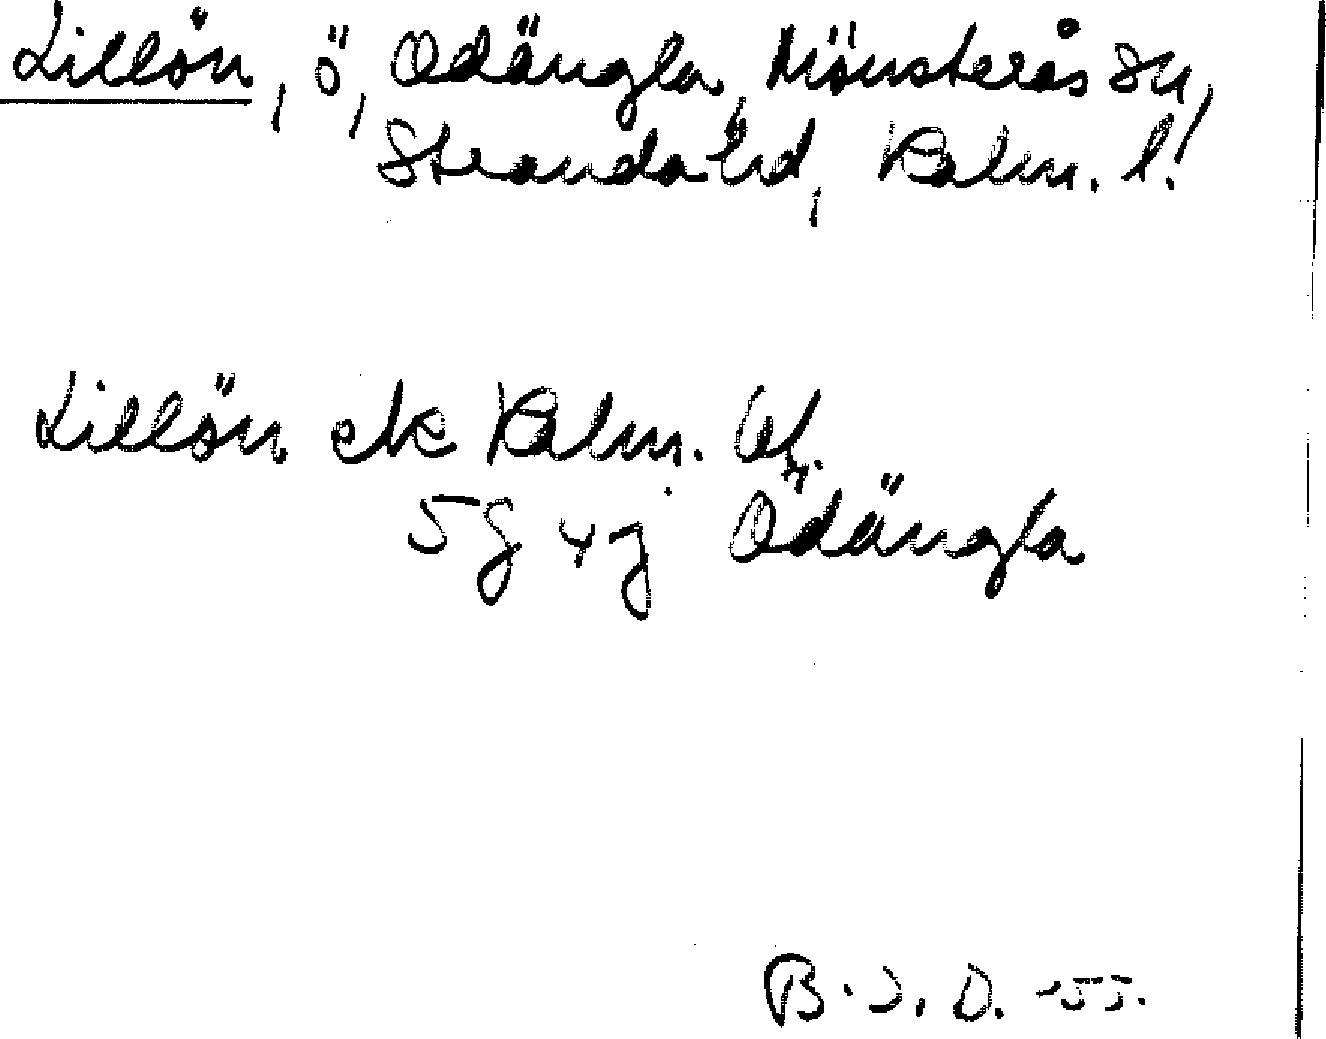 Lillön, ö, Ödängla, Mönsterås sn,
Stranda hd, Kalm. l.
Lillön ek Kalm.
5g 4j Ödängla
B.J.D. -55.